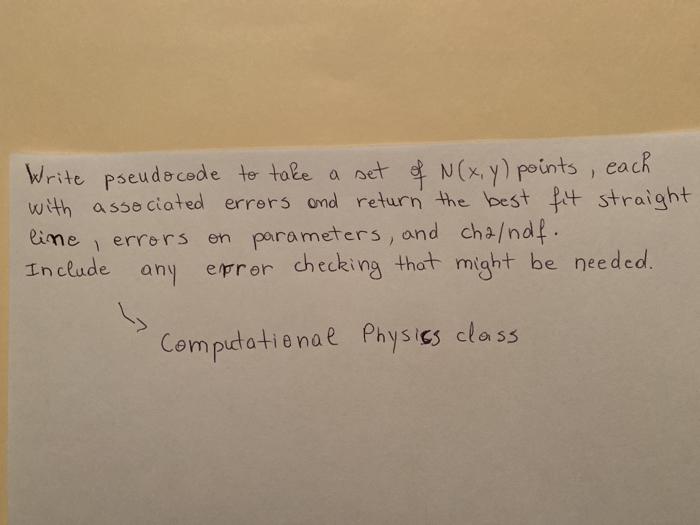 Write pseudocode to take a set of N(x,y) points, each
with associated errors and return the best fit straight
line, errors on parameters, and ch2/ndf.
Include any error checking that might be needed.
↳ Computational Physics class